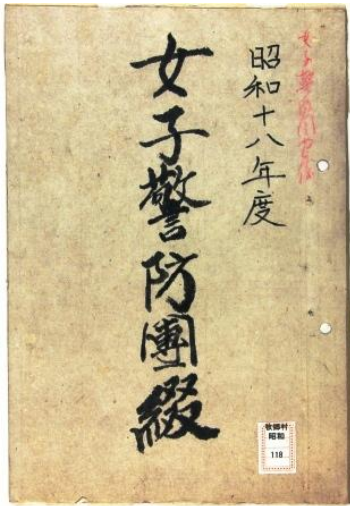 昭和十八年度
女子警防團綴
牧郷村
昭和
118